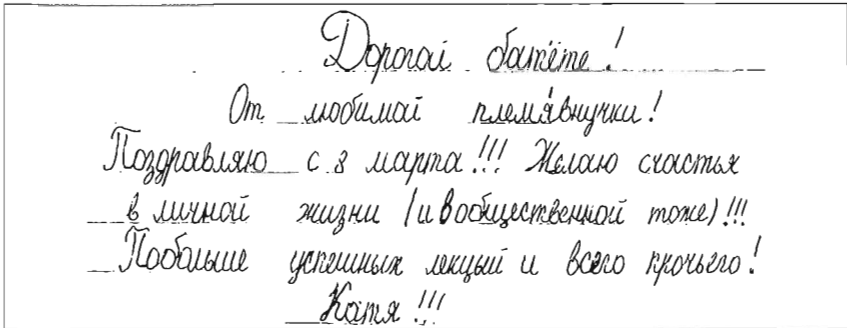 Дорогай !
От любимай племявнучки!
Поздравляю с 8 марта!!! Желаю счастья
в личной жизни (и вобщественной тоже)!!!
Побольше успешных лекцый и всего прочьего!
Катя!!!